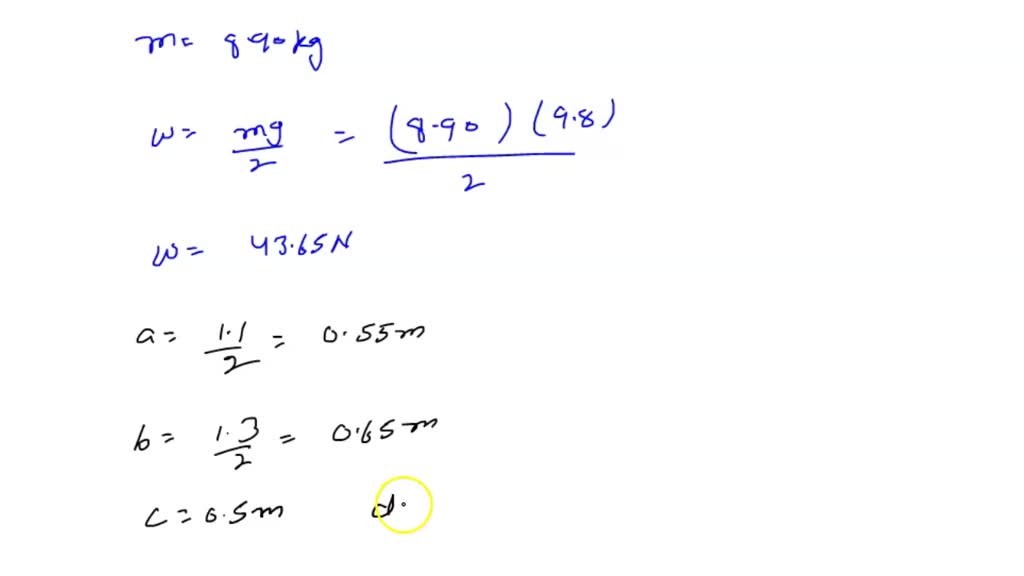 m= 8.90 kg
w= mg/2 = (8.90) (9.8)/2
w= 43.65N
a= 1.1/2 = 0.55m
b= 1.3/2 = 0.65m
c= 0.5m d.